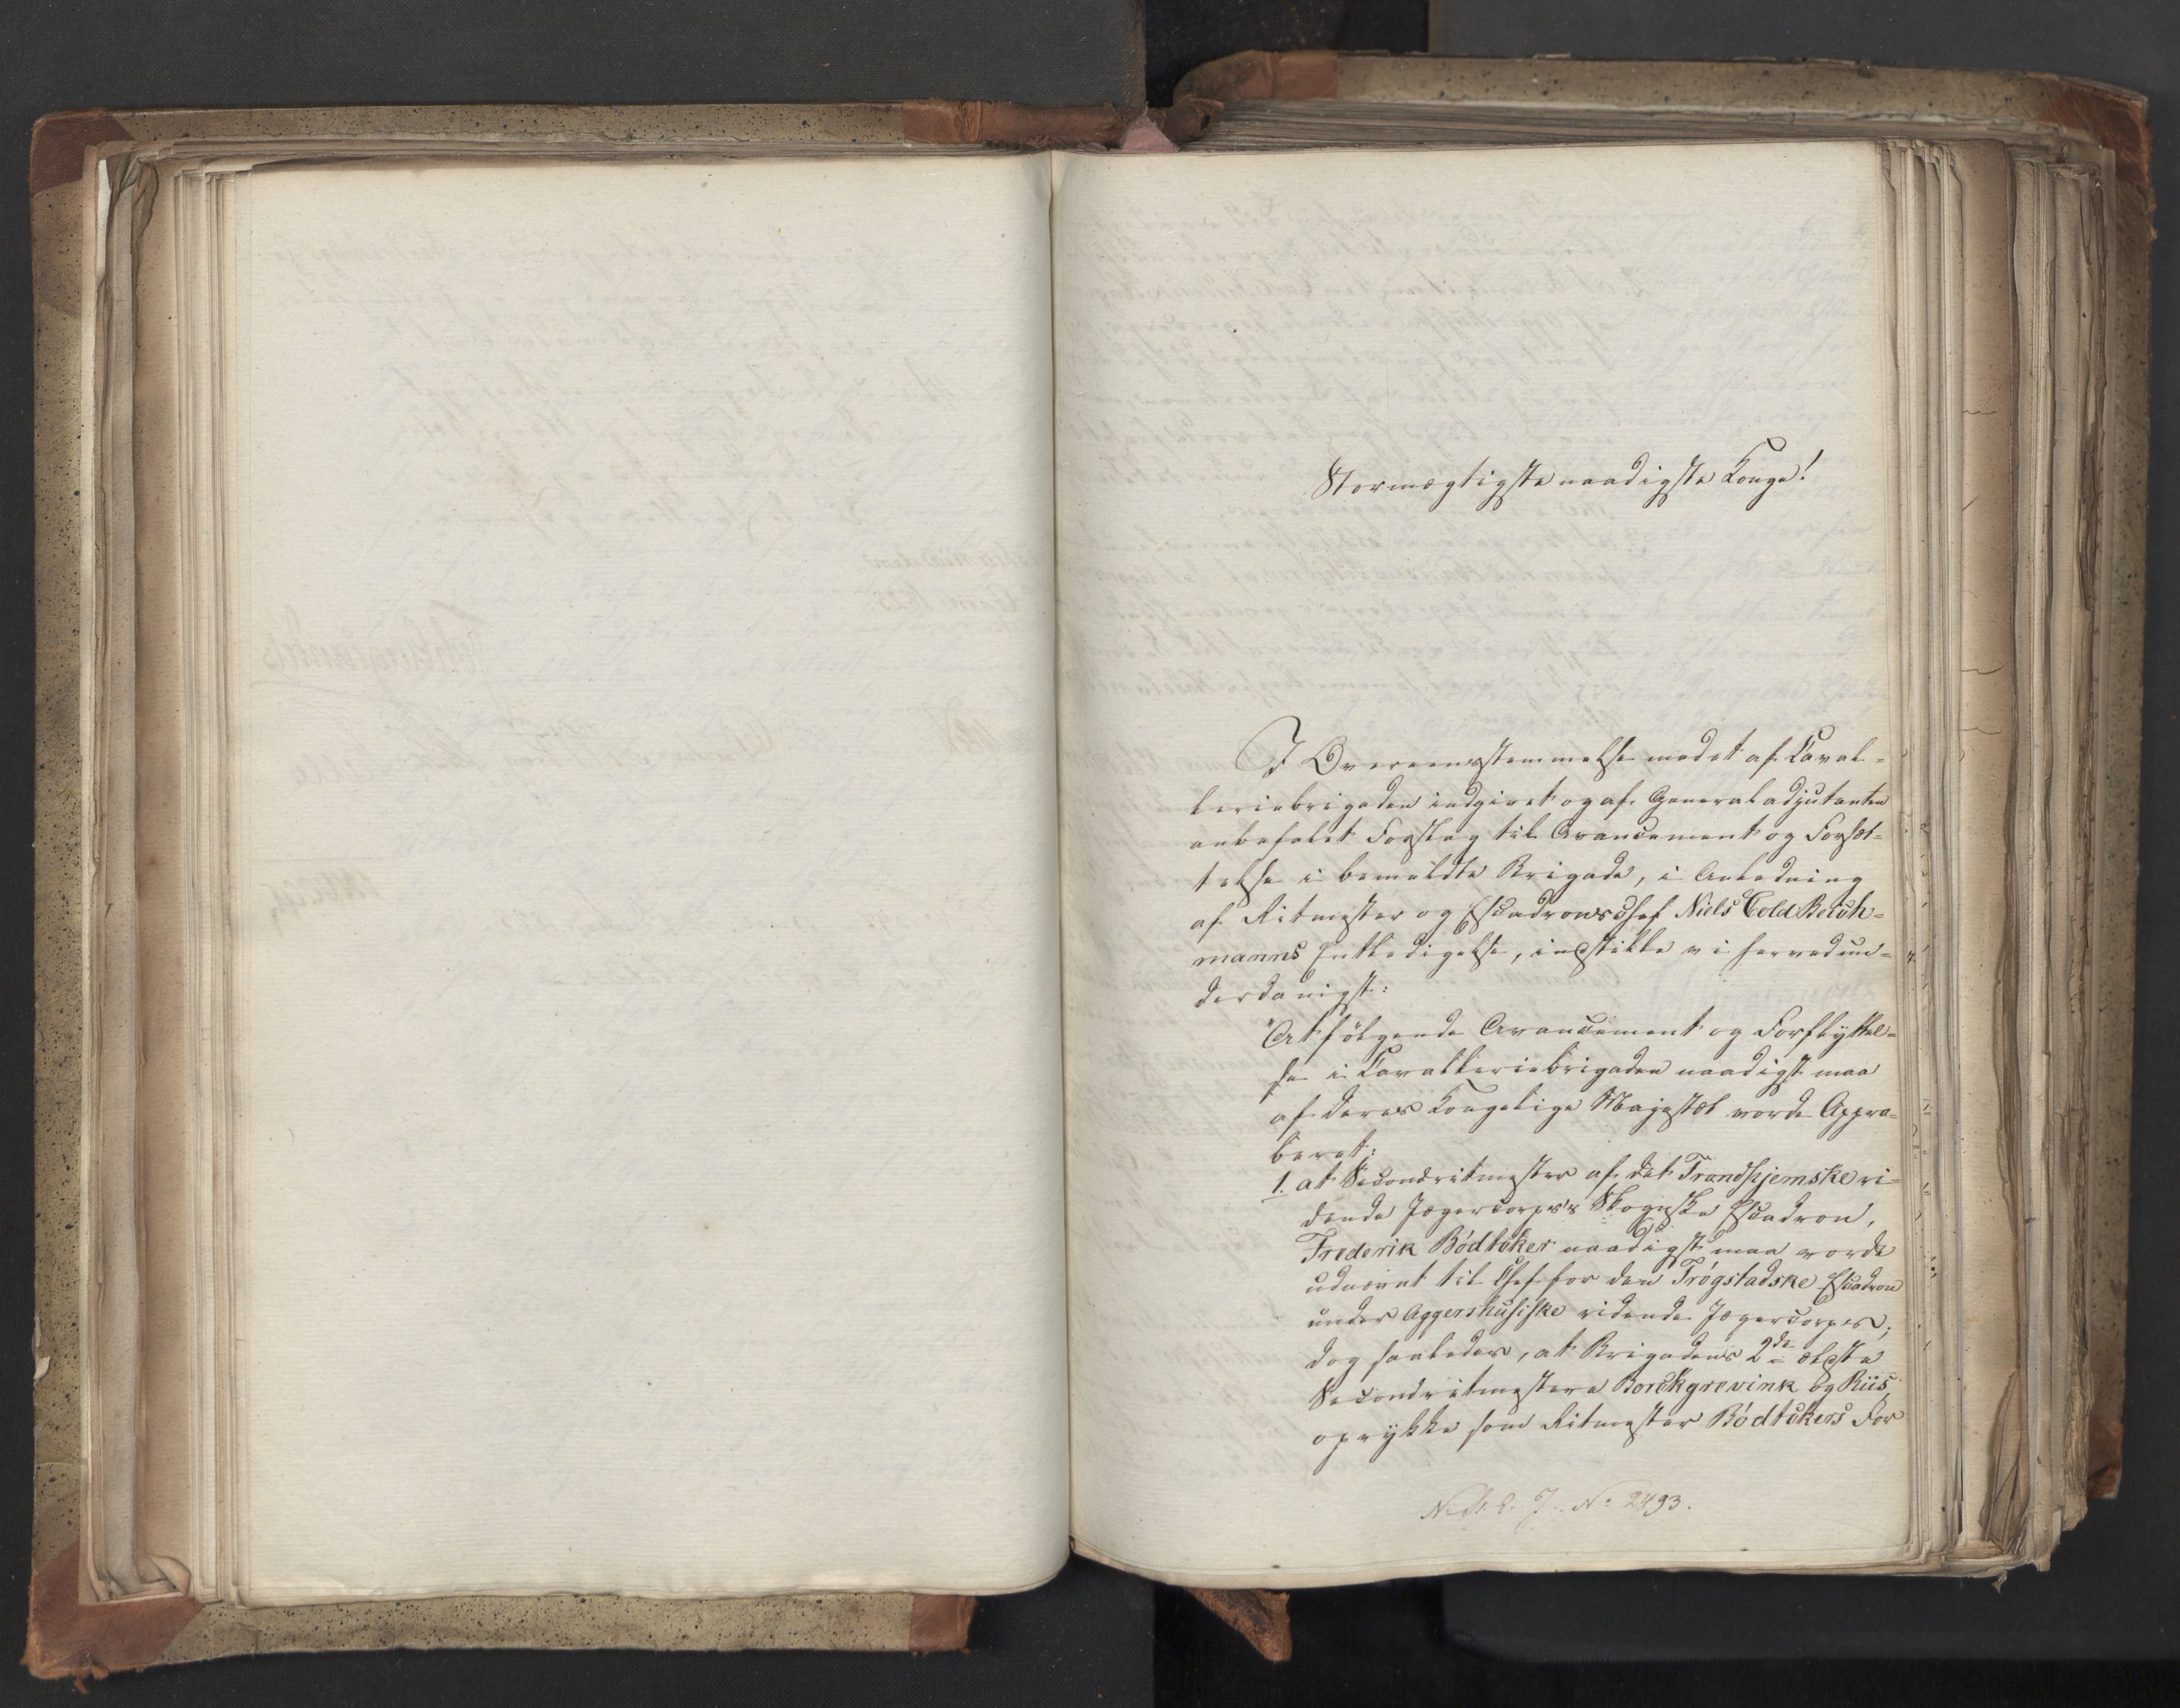 Stormægtigste naadigste Konge!
I Overeensstemmelse med et af Caval-
leriebrigaden indgivet og af Generaladjutanten
anbefalet Forslag til Avancement og Forsæt-
telse i bemeldte Brigade, i Anledning
af Ritmester og Escadronschef Niels Cold Beich-
manns Entledigelse, indstille vi herved un-
derdanigst:
"At følgende Avancement og Forflyttel-
se i Cavalleriebrigaden naadigst maa
af Deres Kongelige Majestæt vorde Appro-
beret:
1. at Secondritmester af det Trondhjemske ri-
dende Jægercorps's Skognske Escadron,
Frederik Bödtker naadigst maa vorde
udnævnt til Chef for den Trögstadske Escadron
under Aggershusiske ridende Jægercorps;
dog saaledes, at Brigadens 2de ældste
Secondritmestere Borchgrevink og Riis,
oprykke som Ritmester Bödtkers For
No 2493.